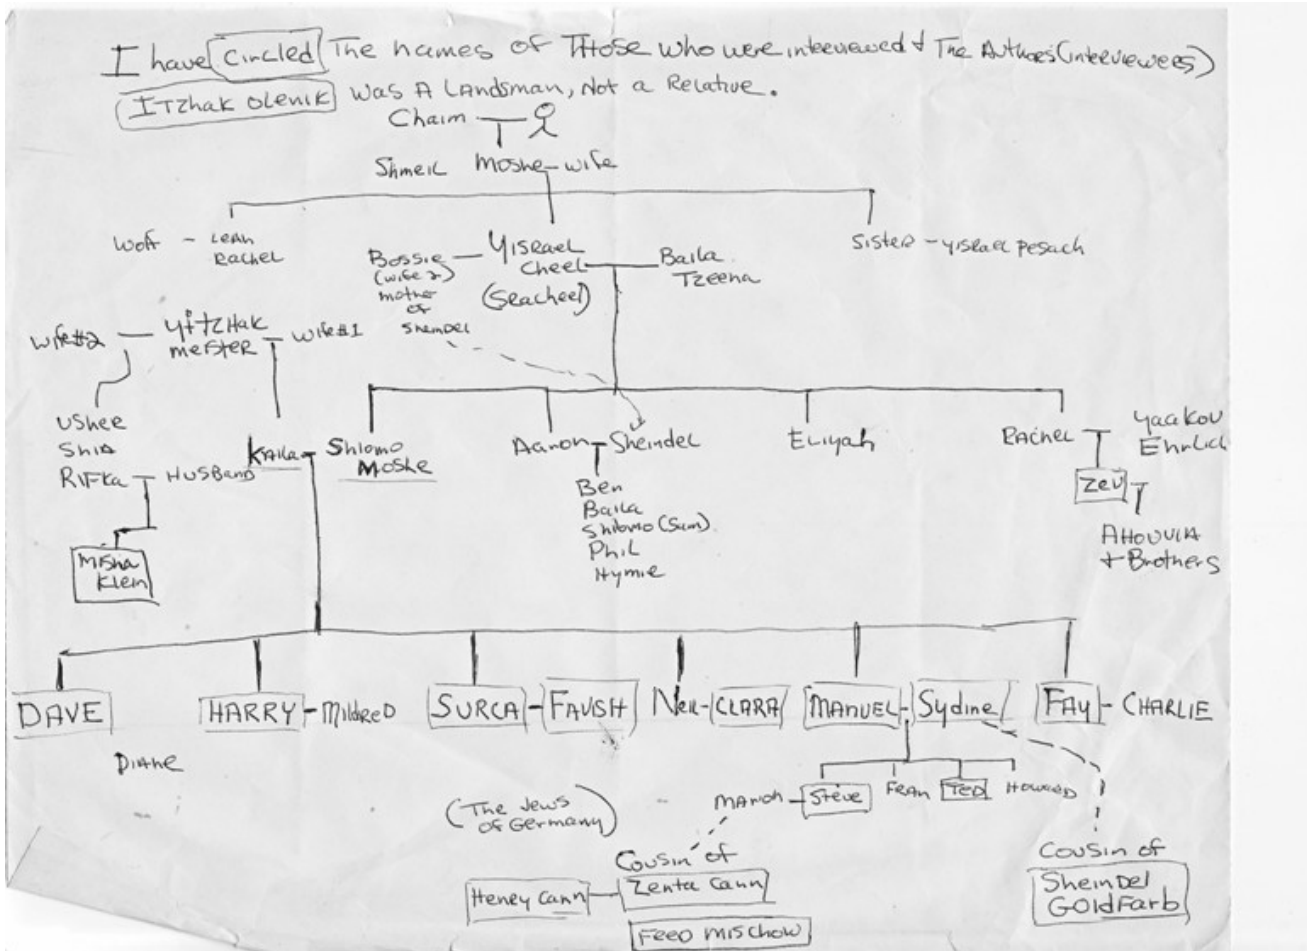 I have Circled The names of Those who were interviewed + The Authors (interviewees)
ITZhak Olenik was A Landsman, Not a Relative.
Chaim
Shmeil Moshe - wife
Wolf - Leah
Rachel
Bossie
(wife 2)
mother
of
Sheindel
Yisrael
Cheel
(Seacheel)
Baila
Tzeena
Sister - Yisrael Pesach
Wife #2 - Yitzhak
Meister - Wife #1
Usher
Shia
Rifka - Husband
Misha
Klein
Kaila - Shlomo
Moshe
Aaron - Sheindel
Ben
Baila
Shlomo (Sam)
Phil
Hymie
Eliyah
Rachel
Yaakov
Ehrlich
Zev
Ahouvia
+ Brothers
DAVE
HARRY - Mildred
SURCA - FAVISH
Neil - CLARA
MANUEL - Sydine
FAY - CHARLIE
Diane
Steve
Fran
TED
Howard
(The Jews
of Germany)
Cousin of
Zenta Cann
Heney Cann
Fred Mischow
Cousin of
Sheindel
Goldfarb